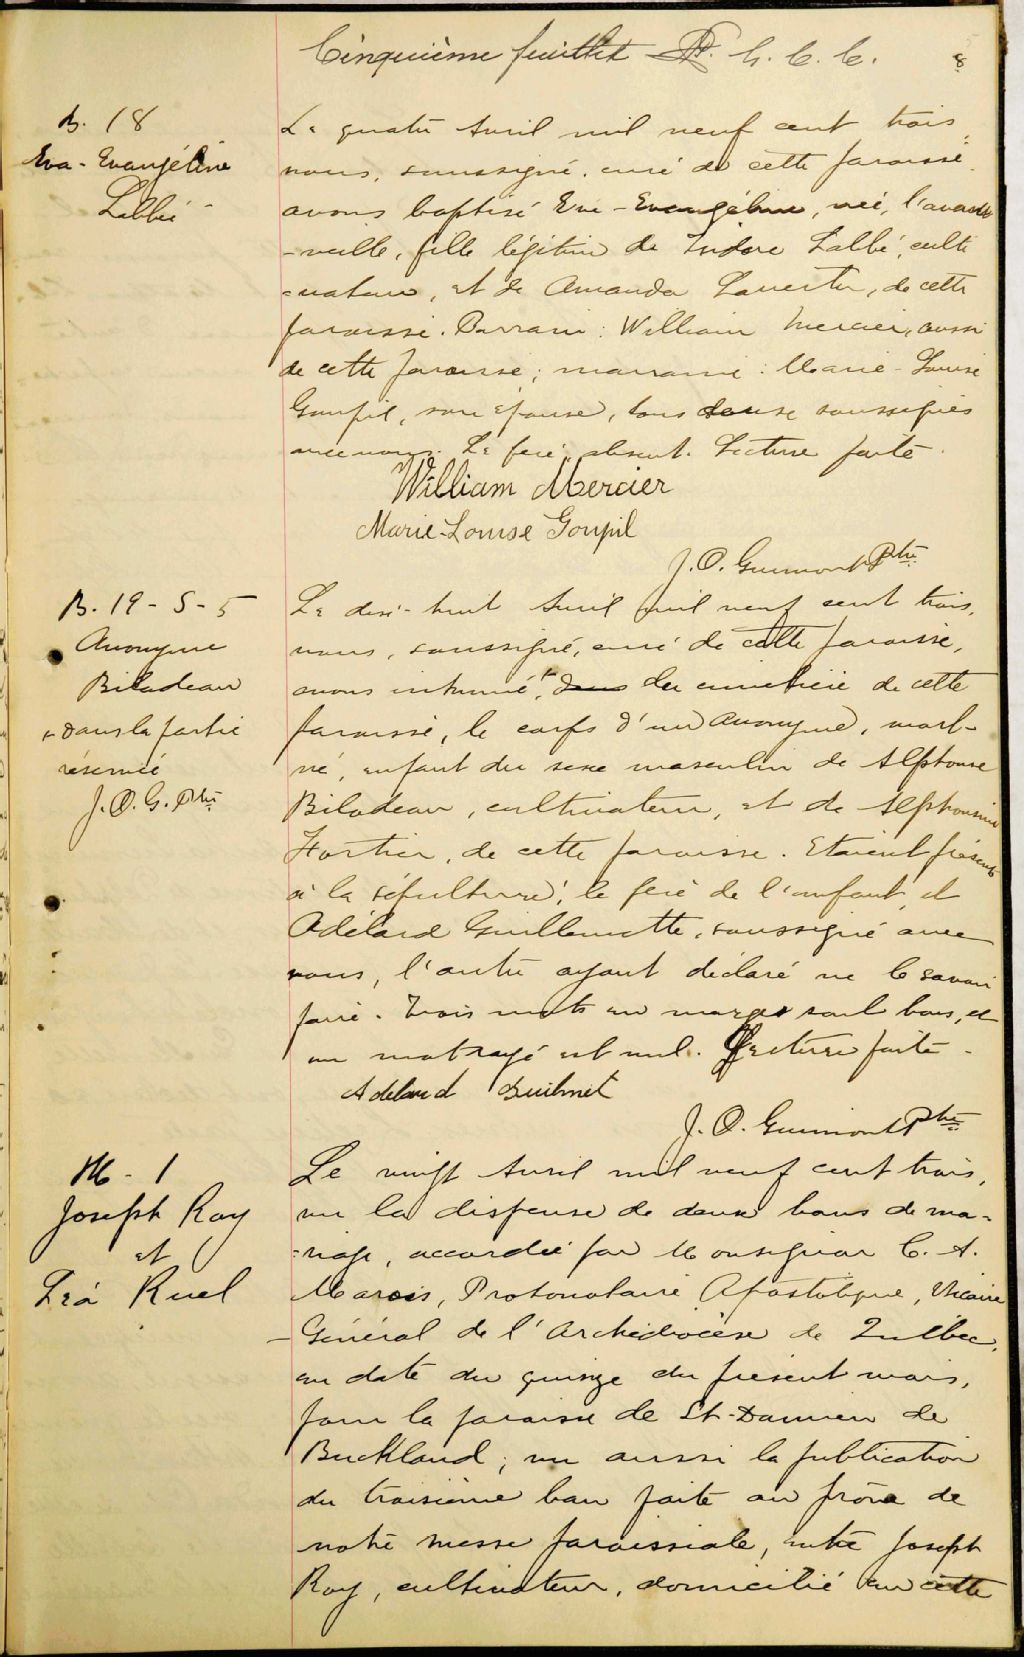 Cinquième feuillet G. C. C.
8
B. 18
Eva-Evangéline
Labbé
Le quatre Avril mil neuf cent trois,
nous, soussigné, curé de cette paroisse
avons baptisé Eva-Evangéline, née, l'avant
-veille, fille légitime de Isidore Labbé, culti
-vateur, et de Amanda, de cette
paroisse. Parrain : William Mercier, aussi
de cette paroisse ; marraine : Marie-Louise
Goupil, son épouse, tous deux soussignés
avec nous. Le père absent. Lecture faite.
William Mercier
Marie-Louise Goupil
J. O. Guimont Ptre
B. 19 - S - 5
Anonyme
Bilodeau
+ dans la partie
réservée
J. O. G. Ptre
Le dix-huit Avril mil neuf cent trois,
nous, soussigné, curé de cette paroisse,
avons inhumé, + dans du cimetière de cette
paroisse, le corps d'un anonyme, mort-
né, enfant du sexe masculin de Alphonse
Bilodeau, cultivateur, et de Alphonsine
Fortier, de cette paroisse. Etaient présents
à la sépulture, le père de l'enfant, et
Adélard Guillemette, soussigné avec
nous, l'autre ayant déclaré ne le savoir
faire. Trois mots en marge sont bons, et
un mot rayé est nul. Lecture faite.
Adelard Guilmet
J. O. Guimont Ptre
M - 1
Joseph Roy
et
Léa Ruel
Le vingt Avril mil neuf cent trois,
vu la dispense de deux bans de ma-
-riage, accordée par Monseigneur C. A.
Marois, Protonotaire Apostolique, Vicaire
-Général de l'Archidiocèse de Québec,
en date du quinze du présent mois,
pour la paroisse de St-Damien de
Buckland ; vu aussi la publication
du troisième ban faite au prône de
notre messe paroissiale, entre Joseph
Roy, cultivateur, domicilié en cette